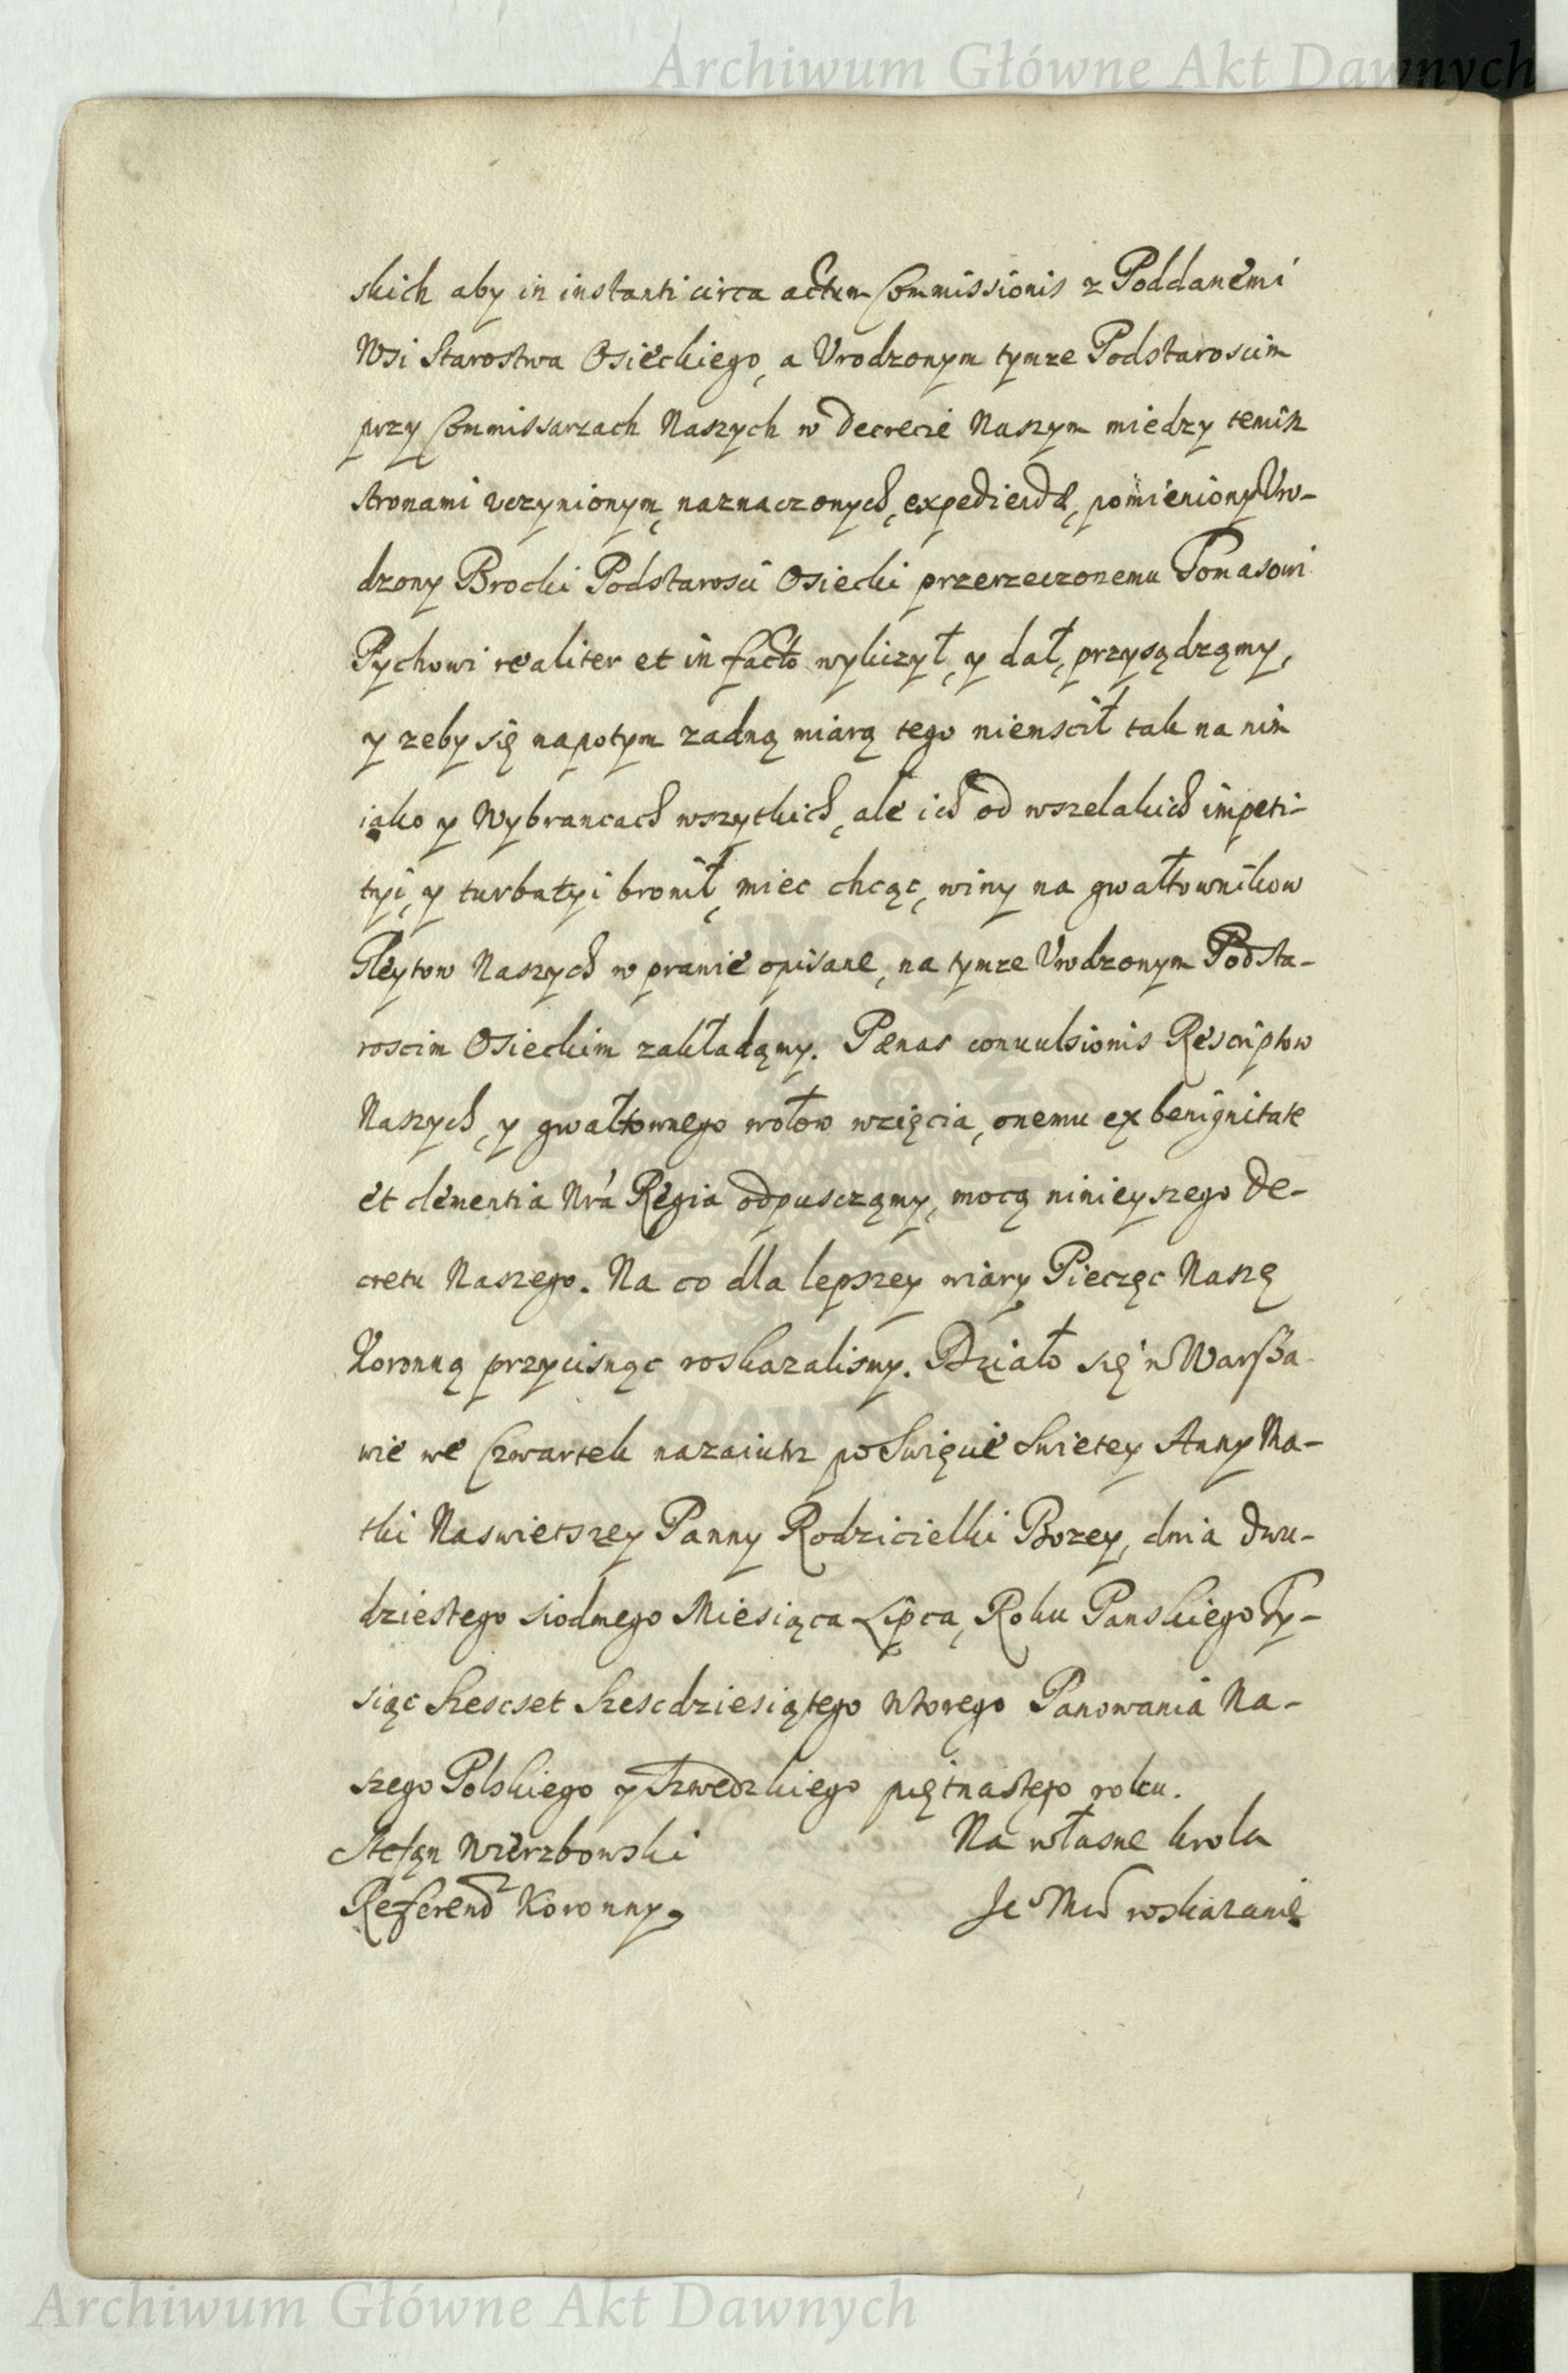 Archiwum Główne Akt Dawnych
skich aby in instanti circa actum Commissionis z Poddanemi
Wsi Starostwa Osieckiego, a Vrodzonym tymze Podstaroscim
przy Commissarzach Naszych w Decrecie Naszym miedzy temisz
stronami vczynionym, naznaczonych, expediendą, pomieniony Vro-
dzony Brocki Podstarosci Osiecki przerzeczonemu Tomasowi
Pychowi realiter et in facto wyliczył, y dał, przysądzamy,
y zeby się napotym zadną miarą tego niemscił tak na nim
iako y Wybrancach wszytkich, ale ich od wszelakich impeti-
tyi, y turbatyi bronił, miec chcąc, winy na gwałtownikow
Gleytow Naszych w prawie opisane, na tymze Vrodzonym Podsta-
roscim Osieckim zakładamy. Pænas convulsionis Rescriptow
Naszych, y gwałtownego wołow wzięcia, onemu ex benignitate
et clementia Nra Regia odpusczamy, mocą ninieyszego De-
cretu Naszego. Na co dla lepszey wiary Pieczęc Naszę
Koronną przycisnąc roskazalismy. Działo się w Warsza-
wie we Czwartek nazaiutrz po Swięcie Swietey Anny Ma-
tki Naswietszey Panny Rodzicielki Bozey, dnia dwu-
dziestego siodmego Miesiąca Lipca, Roku Panskiego Ty-
siąc Szescset Szescdziesiątego Wtorego Panowania Na-
szego Polskiego y Szwedzkiego piętnastego roku.
Stefan Wierzbowski
Referend Koronny
Na własne krola
Je Mci roskazanie
Archiwum Główne Akt Dawnych